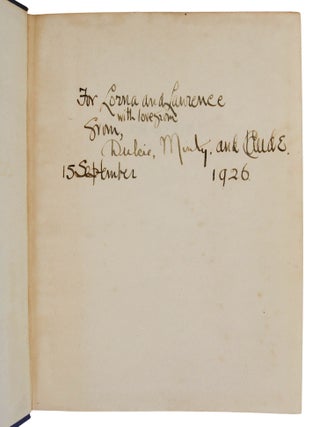 For Lorna and Lawrence
with love from
From,
Dulcie, Minty, and
15 September 1926